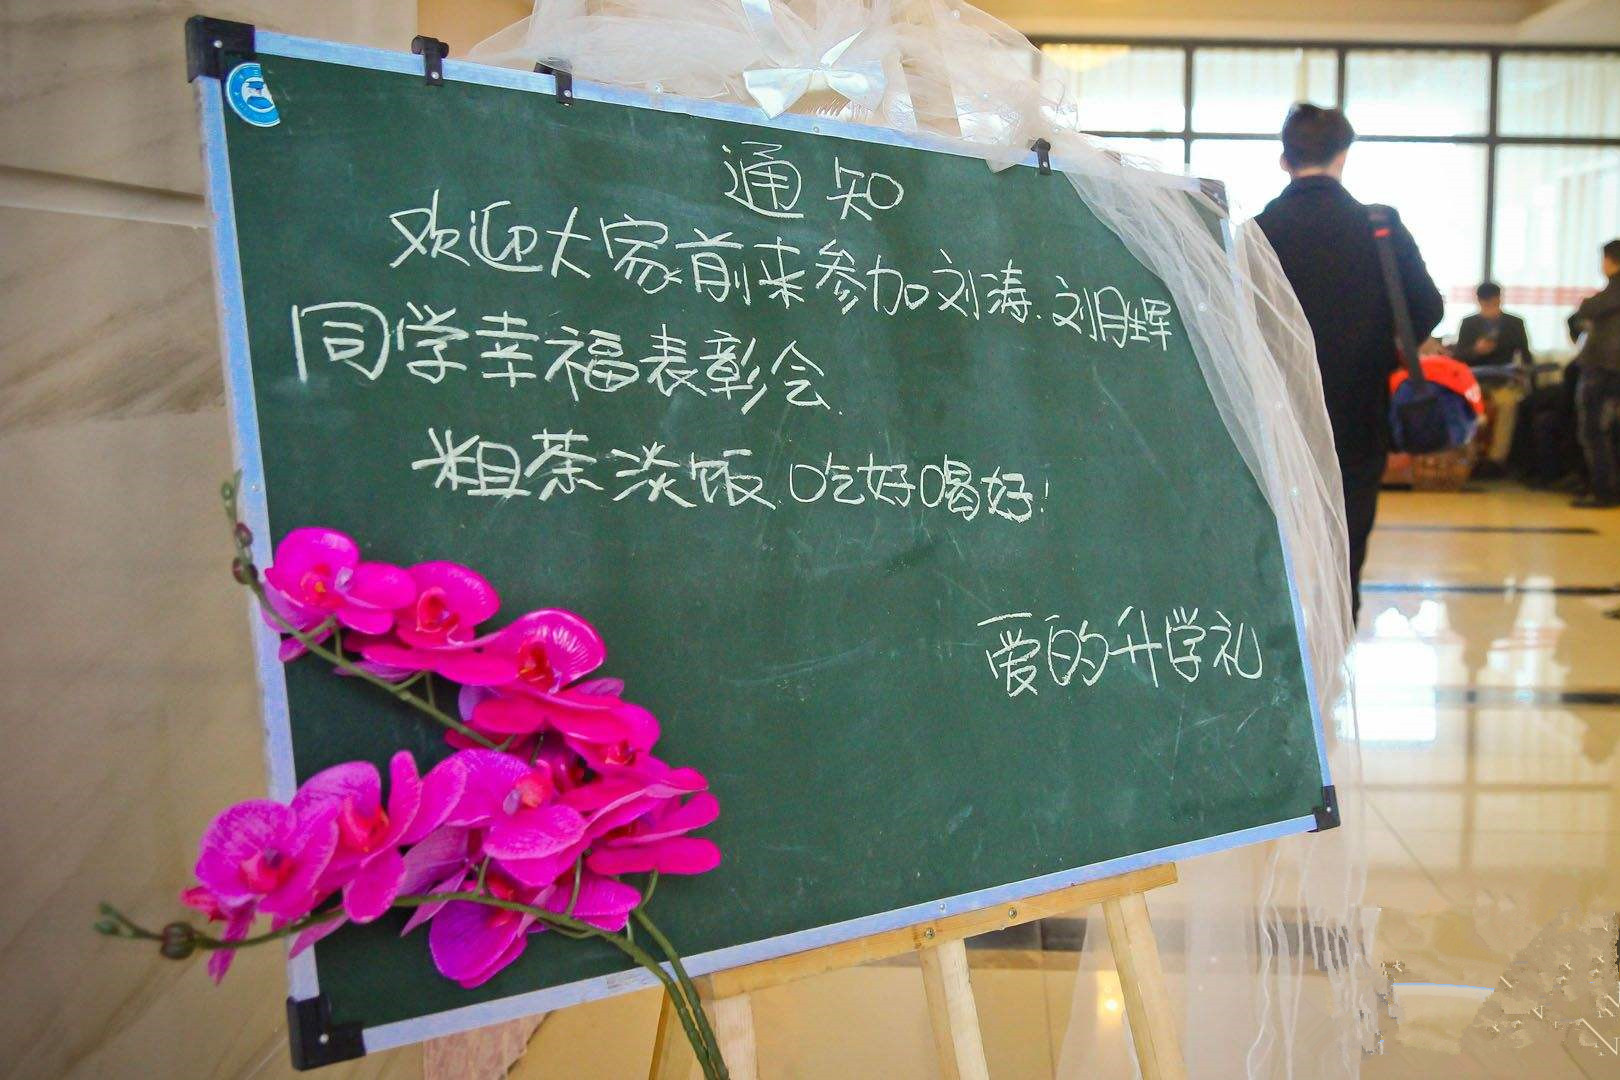 通知
欢迎大家前来参加刘涛.刘胜军
同学幸福表彰会.
粗茶淡饭.吃好喝好!
爱的升学礼